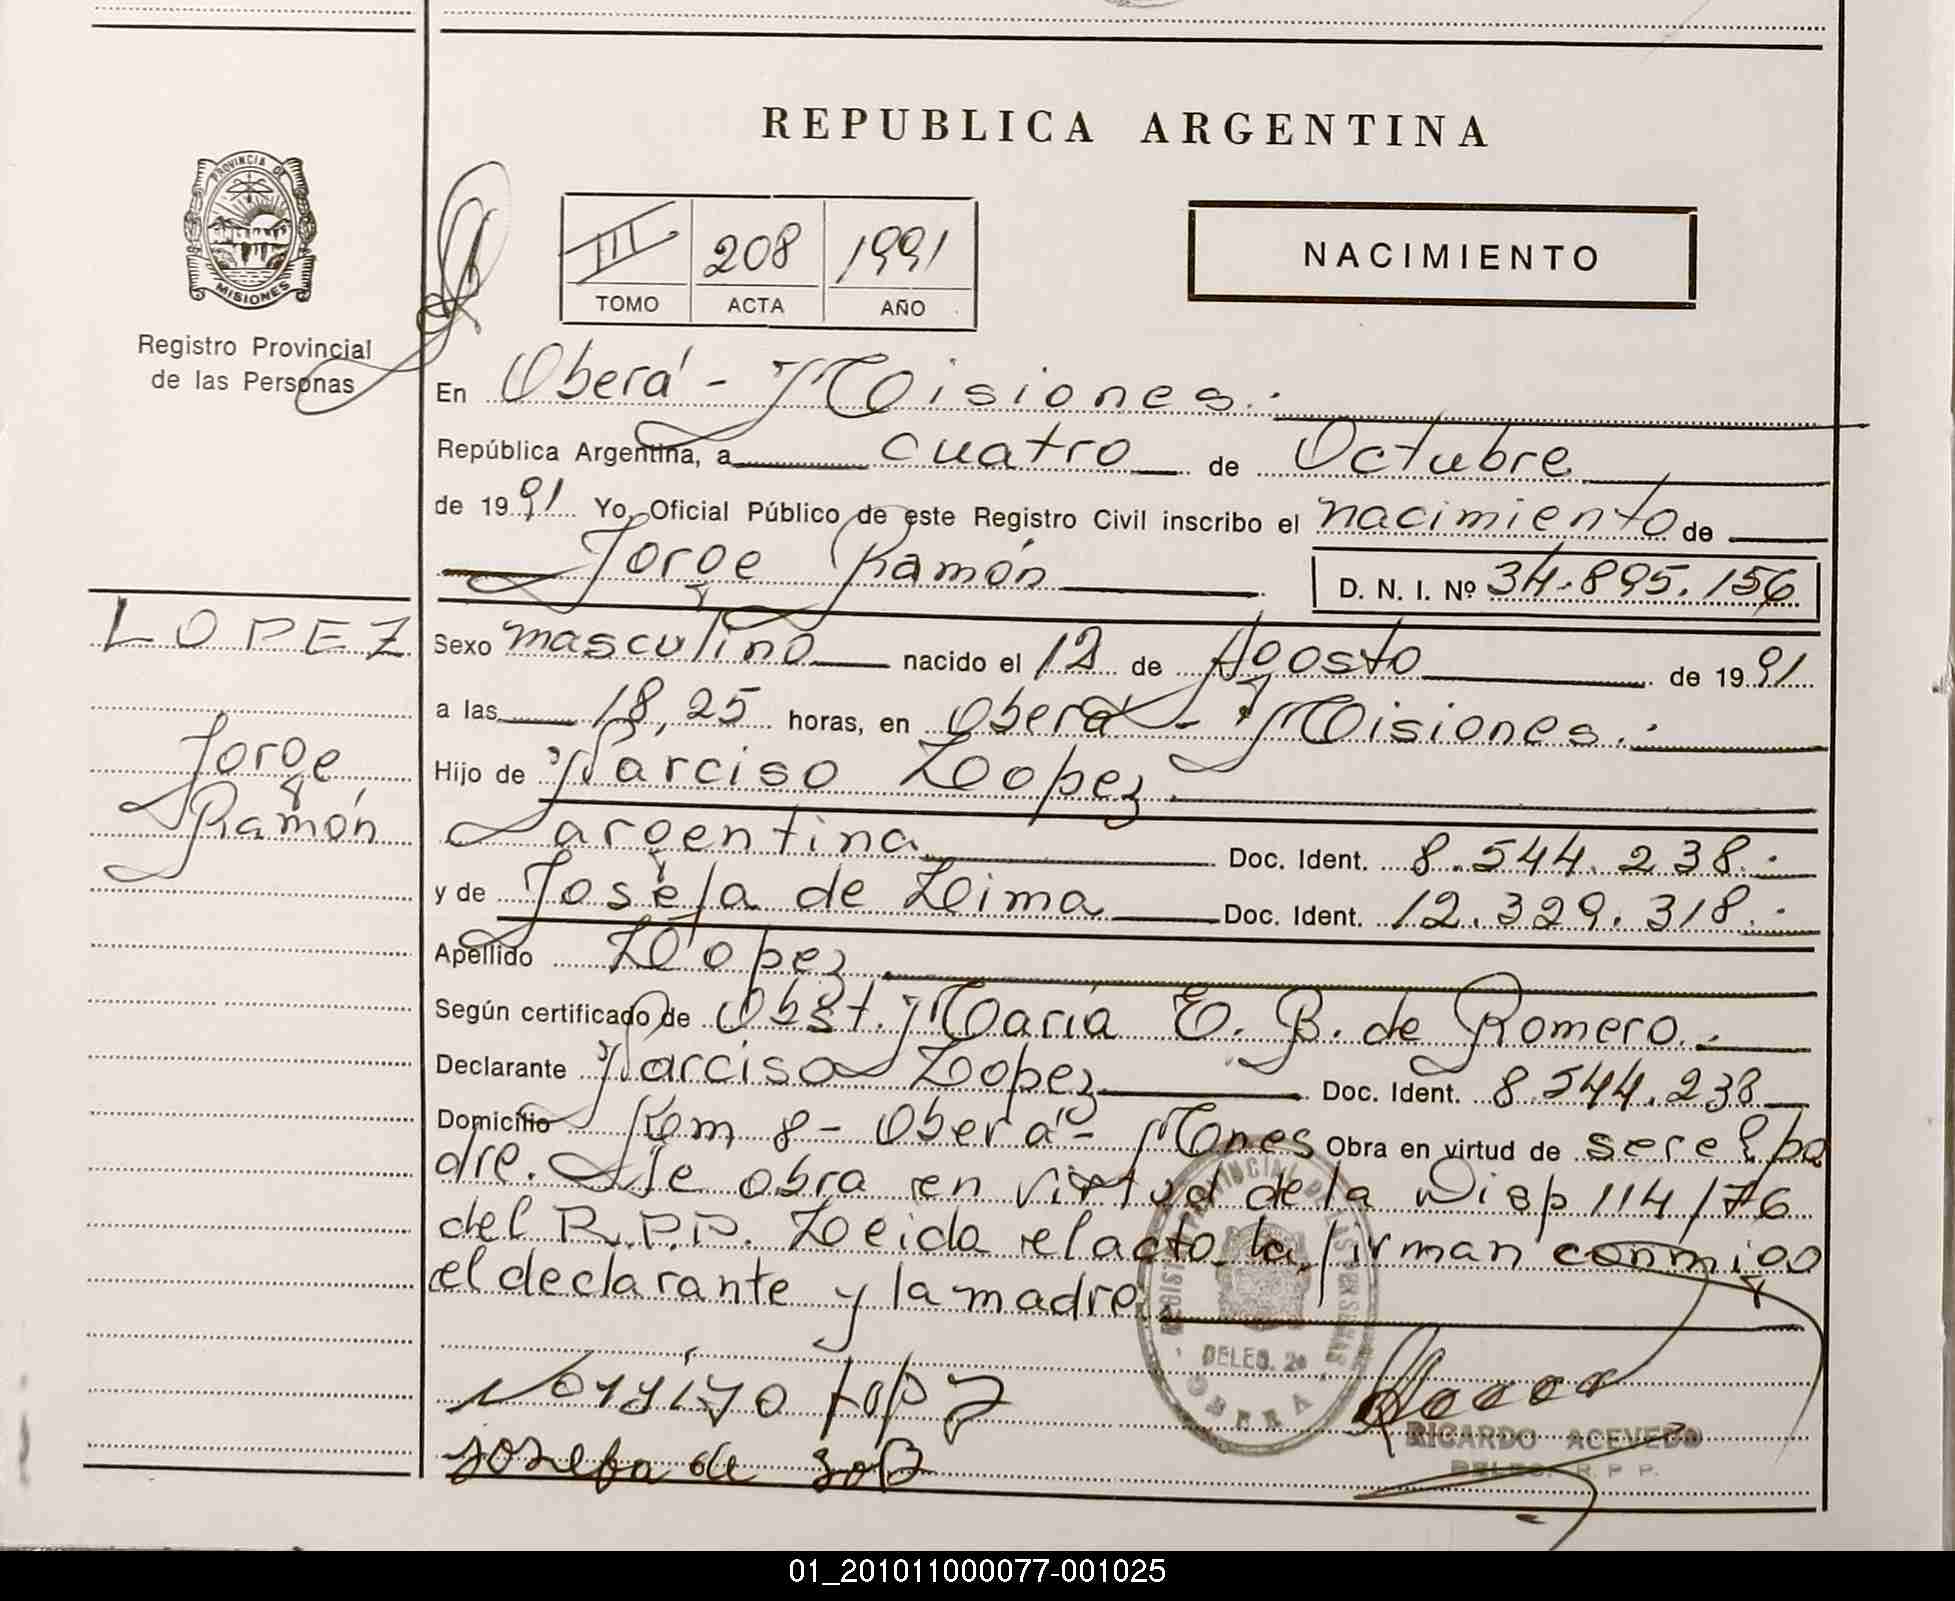 REPUBLICA ARGENTINA
PROVINCIA DE
MISIONES
Registro Provincial
de las Personas
III 208 1991
TOMO ACTA AÑO
NACIMIENTO
En Oberá - Misiones.-
República Argentina, a cuatro de Octubre
de 1991 Yo, Oficial Público de este Registro Civil inscribo el nacimiento de
Jorge Ramón D. N. I. Nº 34.895.156
LOPEZ
Jorge
Ramón
Sexo masculino nacido el 12 de Agosto de 1991
a las 18,25 horas, en Oberá - Misiones.-
Hijo de Narciso Lopez
argentina Doc. Ident. 8.544.238.-
y de Josefa de Lima Doc. Ident. 12.329.318.-
Apellido Lopez
Según certificado de Obst. María E. B. de Romero.-
Declarante Narciso Lopez Doc. Ident. 8.544.238
Domicilio Km 8 - Oberá - Mnes Obra en virtud de ser el pa
dre. Se obra en virtud de la Disp 114/76
del R.P.P. Leida el acta la firman conmigo
el declarante y la madre.
REGISTRO PROVINCIAL DE LAS PERSONAS
DELEG. 2ª
OBERA
RICARDO ACEVEDO
DELEG. R. P. P.
Josefa de
01_201011000077-001025